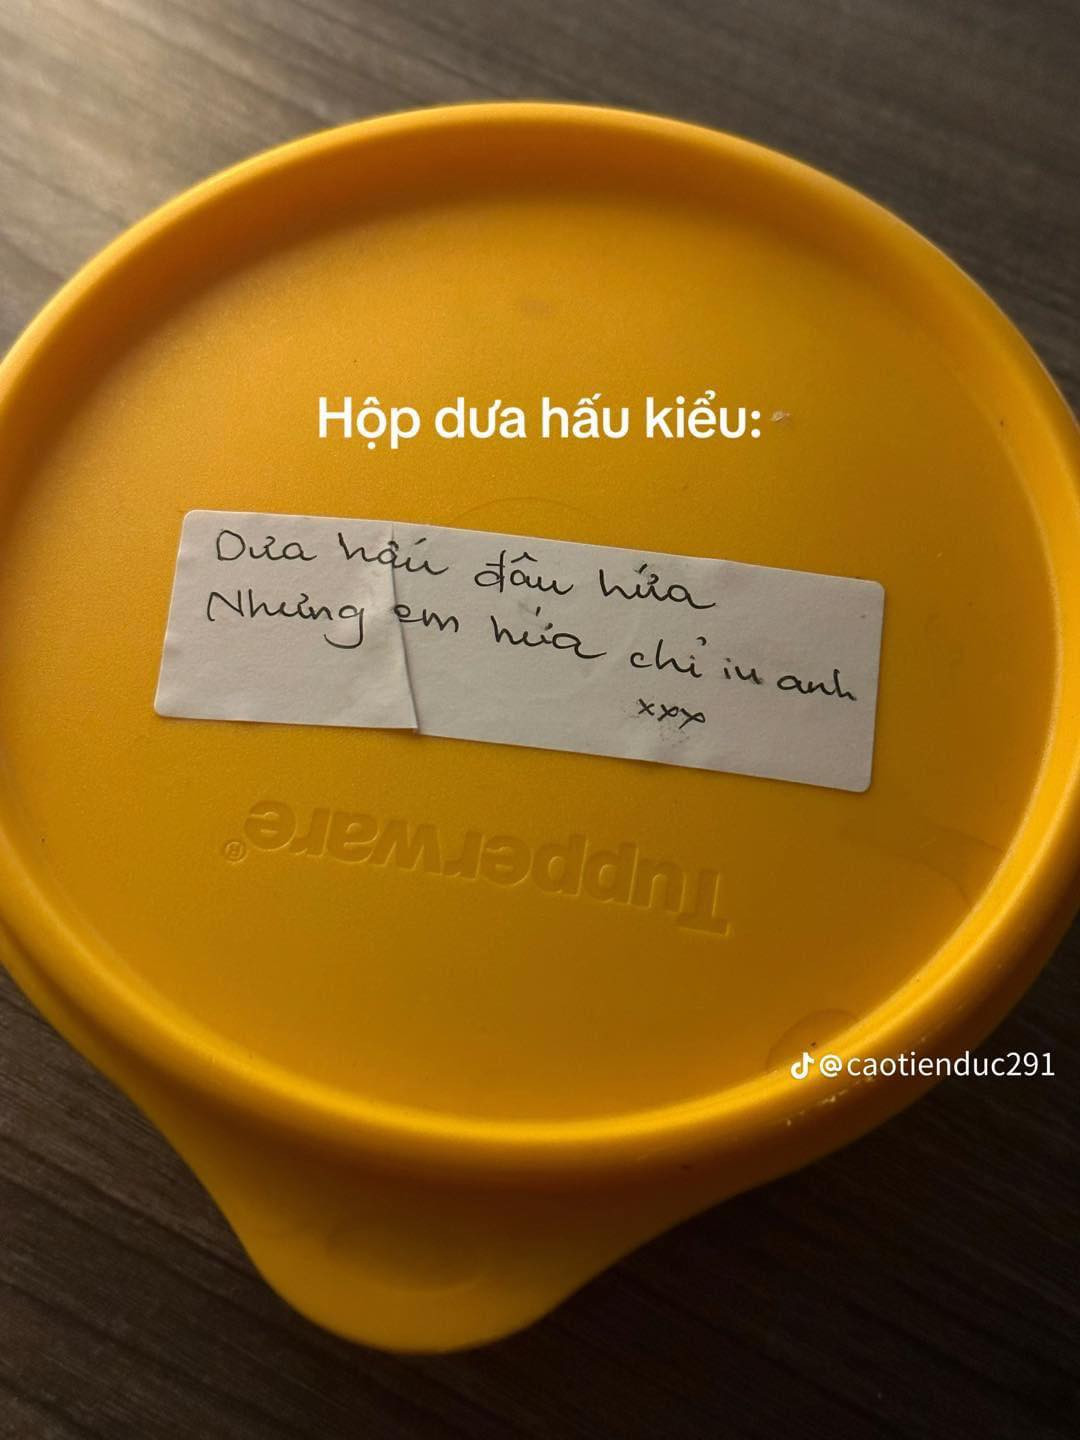 Hộp dưa hấu kiểu:
Dưa hấu đâu hứa
Nhưng em hứa chỉ iu anh
xxx
Tupperware®
@caotienduc291